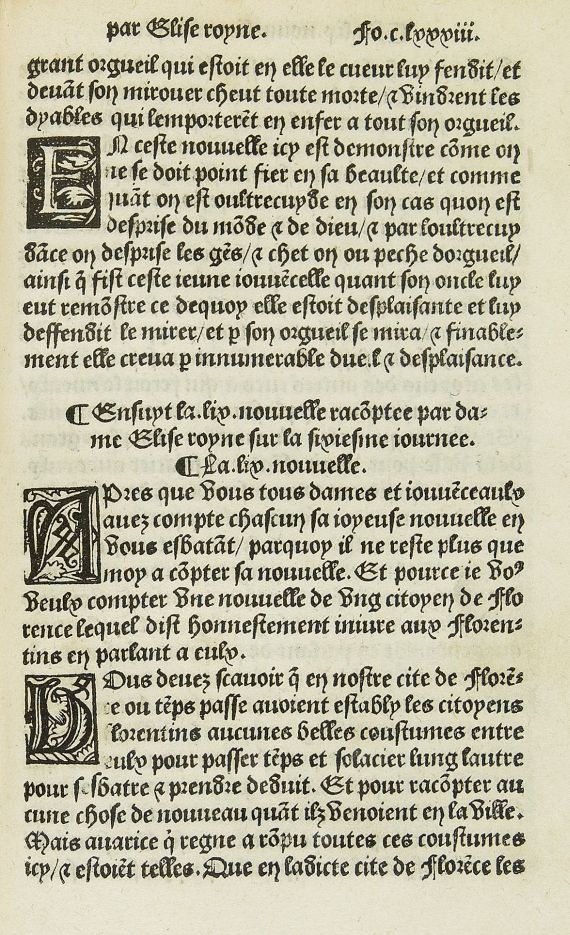 par Elise royne. Fo.c.lxxviii.
grant orgueil qui estoit en elle le cueur luy fendit/et
deuãt son mirouer cheut toute morte/⁊ vindrent les
dyables qui lemporterẽt en enfer a tout son orgueil.
EN ceste nouuelle icy est demonstre cõme on
ne se doit point fier en sa beaulte/et comme
quãt on est oultrecuyde en son cas quon est
desprise du mõde ⁊ de dieu/⁊ par loultrecuy
dãce on desprise les gẽs/⁊ chet on ou peche dorgueil/
ainsi q̃ fist ceste ieune iouuẽcelle quant son oncle luy
eut remõstre ce dequoy elle estoit desplaisante et luy
deffendit le mirer/et ꝑ son orgueil se mira/⁊ finable-
ment elle creua ꝑ innumerable dueil ⁊ desplaisance.
¶ Ensuyt la.lix.nouuelle racõptee par da-
me Elise royne sur la sixiesme iournee.
¶ La.lix.nouuelle.
APres que vous tous dames et iouuẽceaulx
auez compte chascun sa ioyeuse nouuelle en
vous esbatãt/ parquoy il ne reste plus que
moy a cõpter sa nouuelle. Et pource ie voꝰ
veulx compter vne nouuelle de vng citoyen de Flo
rence lequel dist honnestement iniure aux Floren-
tins en parlant a eulx.
VOus deuez scauoir q̃ en nostre cite de Florẽ-
ce ou tẽps passe auoient estably les citoyens
florentins aucunes belles coustumes entre
eulx pour passer tẽps et solacier lung lautre
pour sesbatre ⁊ prendre deduit. Et pour racõpter au
cune chose de nouueau quãt ilz venoient en la ville.
Mais auarice q̃ regne a rõpu toutes ces coustumes
icy/⁊ estoiẽt telles. Que en ladicte cite de Florẽce les